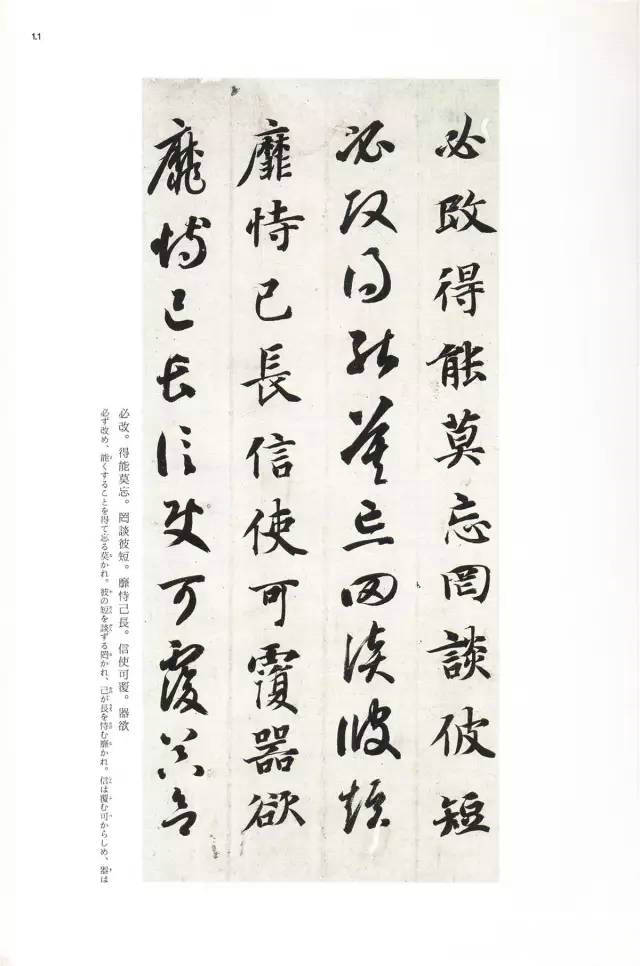 11
必改得能莫忘罔談彼短
必改得能莫忘罔談彼短
靡恃己長信使可覆器欲
靡恃己長信使可覆器欲
必改。得能莫忘。罔談彼短。靡恃己長。信使可覆。器欲
必ず改め、能くすることを得て忘る莫かれ。彼の短を談ずる罔かれ、己が長を恃む靡かれ。信は覆む可からしめ、器は